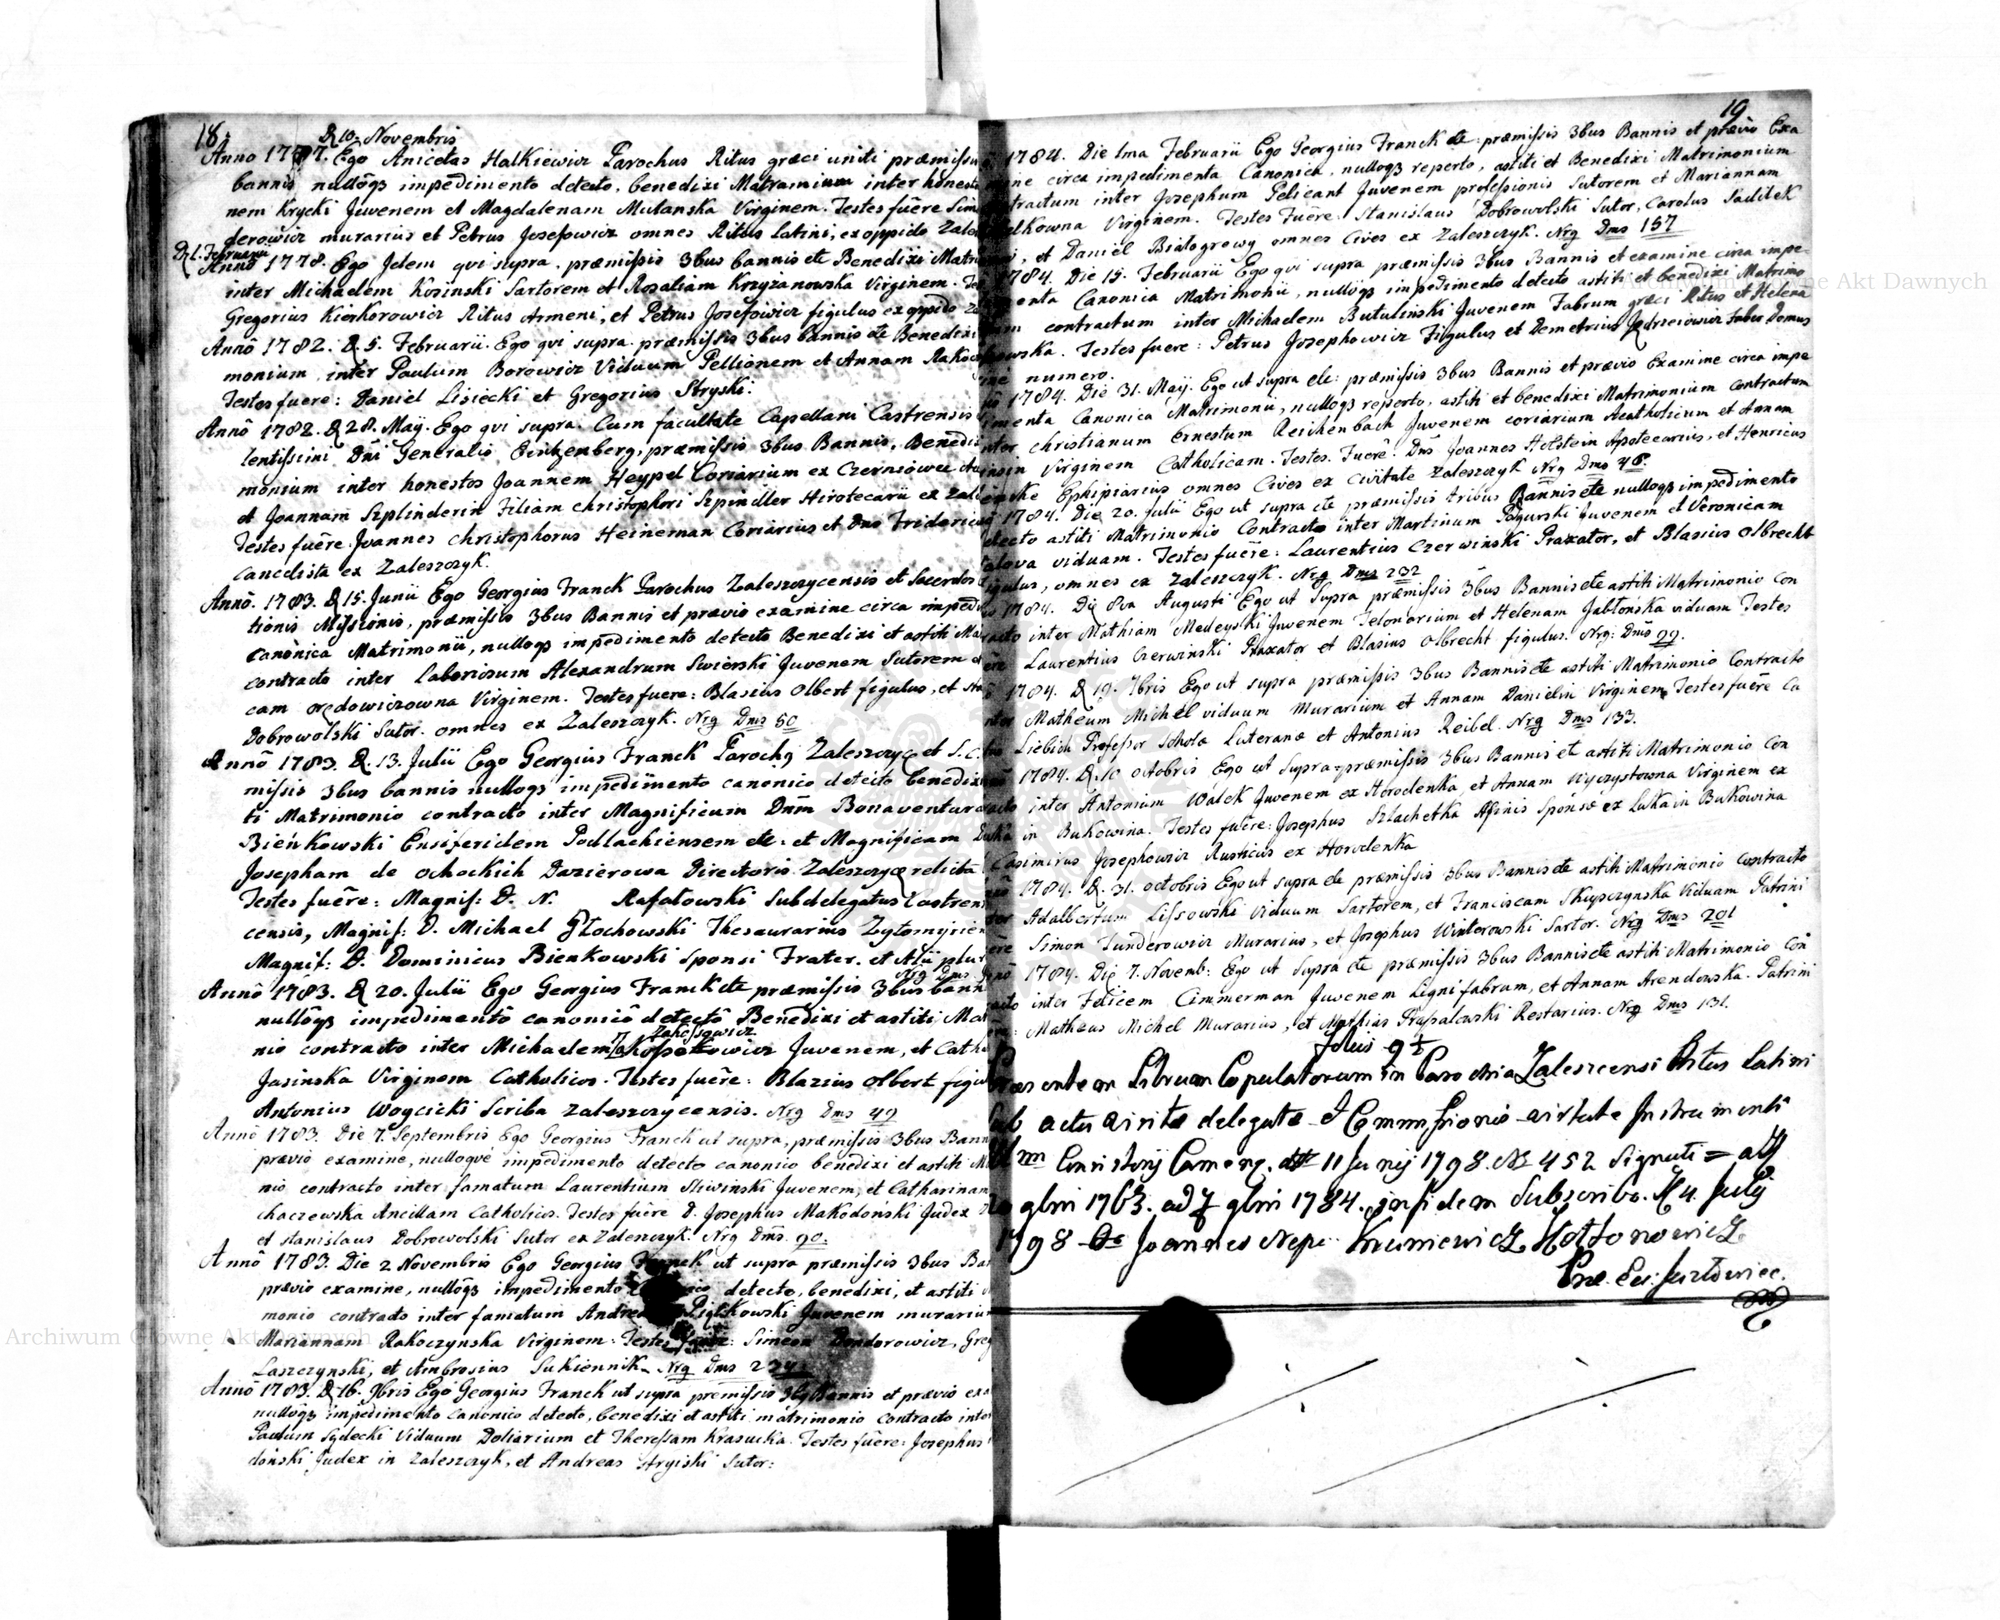 18.
D. 10. Novembris
Anno 1777. Ego Anicetas Halkiewicz Parochus Ritus græci uniti præmissis
bannis nulloq3 impedimento detecto, benedixi Matramium inter honest
nem Krycki Juvenem et Magdalenam Mulanska Virginem. Testes fuêre Sim
derowicz murarius et Petrus Josefowicz omnes Ritus Latini, ex oppido Zale
D. 1. Februarii
Anno 1778. Ego Idem qui supra. præmissis 3bus bannis etc Benedixi Matri
inter Michaelem Kosinski Sartorem et Rosaliam Krzyżanowska Virginem. Tes
Gregorius Kierkorowicz Ritus Armeni, et Petrus Josefowicz figulus ex oppido Za
Annô 1782. D. 5. Februarii. Ego qui supra præmissis 3bus bannis etc Benedixi
monium inter Paulum Borowicz Viduum Pellionem et Annam Rakoc
Testes fuere: Daniel Lisiecki et Gregorius Stryski.
Annô 1782. D. 28. Maÿ. Ego qui supra. Cum facultate Capellani Castrensis
lentissimi Dñi Generalis Eintzenberg, præmissis 3bus Bannis, Benedix
monium inter honestos Joannem Heypel Coriarium ex Czerniowce
et Joannam Szplinderin Filiam christophori Szpindler Hirotecarii ex Zal
Testes fuêre Joannes christophorus Heineman Coriarius et Dnus Fridericus
Cancelista ex Zaleszczyk.
Annô. 1783. D. 15. Junii Ego Georgius Franck Parochus Zaleszczycensis et Sacerdos
tionis Missionis, præmissis 3bus Bannis et prævio examine circa impedi
canônica Matrimonii, nulloq3 impedimento detecto Benedixi et astiti Ma
contracto inter Laboriosum Alexandrum Swierski Juvenem Sutorem et
cam Orędowiczowna Virginem. Testes fuere: Blasius Olbert figulus, et Sta
Dobrowolski Sutor. omnes ex Zaleszczyk. Nrg Dms 50
Annô 1783. D. 13. Julii Ego Georgius Franck Paroch9 Zaleszczyc et S.C.
missis 3bus bannis nulloq3 impedimento canonico detecto benedixi
ti Matrimonio contracto inter Magnificum Dnm Bonaventura
Bieńkowski Ensiferidem Podlachiensem etc: et Magnificam
Josepham de Ochockich Dozierowa Directoris Zaleszczyc relicta
Testes fuêre: Magnif: D. N. Rafalowski Subdelegatus Castren
censis, Magnif: D. Michael Głochowski Thesaurarius Zytomyrien
Magnif: D. Dominicus Bienkowski Sponsi Frater. et Alii plur
Nrg Dms
Annô 1783. D. 20. Julii Ego Georgius Franck etc præmissis 3bus bann
nullôq3 impedimentô canonicô detectô Benedixi et astiti Mat
nio contracto inter Michaelem Juvenem, et Catha
Jasinska Virginem Catholicos. Testes fuêre: Blazius Olbert figu
Antonius Woycicki Scriba Zaleszczycensis. Nrg Dms 49
Annô 1783. Die 7. Septembris Ego Georgius Franck ut supra, præmissis 3bus Bann
prævio examine, nulloque impedimento detecto canonico benedixi et astiti M
nio contracto inter famatum Laurentium Sliwinski Juvenem, et Catharinam
chaczewska Ancillam Catholicos. Testes fuêre D. Josephus Makodonski Judex
et Stanislaus Dobrowolski Sutor ex Zaleszczyk. Nrg Dms. 90.
Annô 1783. Die 2 Novembris Ego Georgius Franck ut supra præmissis 3bus Ban
prævio examine, nullôq3 impedimento detecto, benedixi, et astiti
monio contracto inter famatum Andream Piątkowski Juvenem murariu
Mariannam Rakoczynska Virginem. Testes fuêre: Simeon Dondorowicz, Greg
Laszczynski, et Ambrosius Sukiennik. Nrg Dms
Annô 1783. D. 16. 9bris Ego Georgius Franck ut supra premissis 3bus Bannis et prævio exa
nullôq3 impedimento canonico detecto, benedixi et astiti matrimonio contracto inter
Paulum Sędecki Viduum Doliarium et Theressam Krasucka. Testes fuêre: Josephus
donski Judex in Zaleszczyk, et Andreas Stryiski Sutor:
19
1784. Die 1ma Februarii Ego Georgius Franck etc: præmissis 3bus Bannis et prævio Exa
mine circa impedimenta Canonica, nulloq3 reperto, astiti et Benedixi Matrimonium
tractum inter Josephum Pelicant Juvenem professionis Sutorem et Mariannam
elkowna Virginem. Testes Fuêre: Stanislaus Dobrowolski Sutor, Carolus Saditek
, et Daniel Białogrowy omnes Cives ex Zaleszczyk. Nrg Dms 157
1784. Die 15. Februarii Ego qui supra præmissis 3bus Bannis et examine circa impe
menta Canonica Matrimonii, nulloq3 impedimento detecto astiti et benedixi Matrimo
contractum inter Michaelem Butulinski Juvenem Fabrum græci Ritus et Helena
kowska. Testes fuere: Petrus Josephowicz Figulus et Demetrius Jędrzeiowicz Faber Domus
numero.
1784. Die 31. Maÿ. Ego ut supra etc: præmissis 3bus Bannis et prævio Examine circa impe
imenta Canonica Matrimonii, nulloq3 reperto, astiti et benedixi Matrimonium contractum
inter christianum Ernestum Reichenbach Juvenem coriarium Acatholicum et Annam
Virginem Catholicam. Testes Fuêre. Dns Joannes Holstein Apotecarius, et Henricus
Ephipiarius omnes Cives ex Civitate Zaleszczyk Nrg Dms 46.
1784. Die 20. Julii Ego ut supra etc præmissis tribus Bannis etc nulloq3 impedimento
detecto astiti Matrimonio Contracto inter Martinum Pagurski Juvenem et Veronicam
viduam. Testes fuere: Laurentius Czerwinski Praxator, et Blasius Olbrecht
figulus, omnes ex Zaleszczyk. Nrg Dms 232
1784. Die 8va Augusti Ego ut Supra præmissis 3bus Bannis etc astiti Matrimonio Con
tracto inter Mathiam Medeyski Juvenem Telonarium et Helenam Jabłońska viduam Testes
Laurentius Czerwinski Praxator et Blasius Olbrecht figulus. Nrg: Dms 99.
1784. D. 19. 7bris Ego ut supra præmissis 3bus Bannis etc astiti Matrimonio Contracto
inter Matheum Michel viduum Murarium et Annam Danielin Virginem Testes fuêre Ca
Liebich Professor Scholæ Luteranæ et Antonius Reibel. Nrg Dms 133.
1784. D. 10 Octobris Ego ut Supra præmissis 3bus Bannis et astiti Matrimonio Con
tracto inter Antonium Wałek Juvenem ex Horodenka, et Annam Wyczystowna Virginem ex
Łuka in Bukowina. Testes fuêre: Josephus Szlachetka Afinis Sponsæ ex Łuka in Bukowina
Casimirus Josephowicz Rusticus ex Horodenka
1784. D. 31. Octobris Ego ut supra etc præmissis 3bus Bannis etc astiti Matrimonio Contracto
inter Adalbertum Lissowski Viduum Sartorem, et Franciscam Skupczynska Viduam Patrini
fuêre Simon Tunderowicz Murarius, et Josephus Winterowski Sartor. Nrg Dms 201
Annô 1784. Die 7. Novemb: Ego ut Supra etc præmissis 3bus Bannis etc astiti Matrimonio Con
tracto inter Felicem Cimmerman Juvenem Lignifabrum, et Annam Arendowska. Patrini
Mathæus Michel Murarius, et Mathias Prussalowski Restarius. Nrg Dms 131.
foliis 9½
Præsentem Librum Copulatorum in Parochia Zalescensi Ritus Latini
Sub actu visitæ delegatæ et Commissionis virtute Instrumenti
Consistorij Camene. 11 Junij 1798. No 452 Signati = a
1763. ad 1784. in fidem Subscribo. D. 4. July
1798 Joannes Nepo: Krzuniewicz Hołtonowicz
Archiwum Główne Akt Dawnych
Archiwum Główne Akt Dawnych